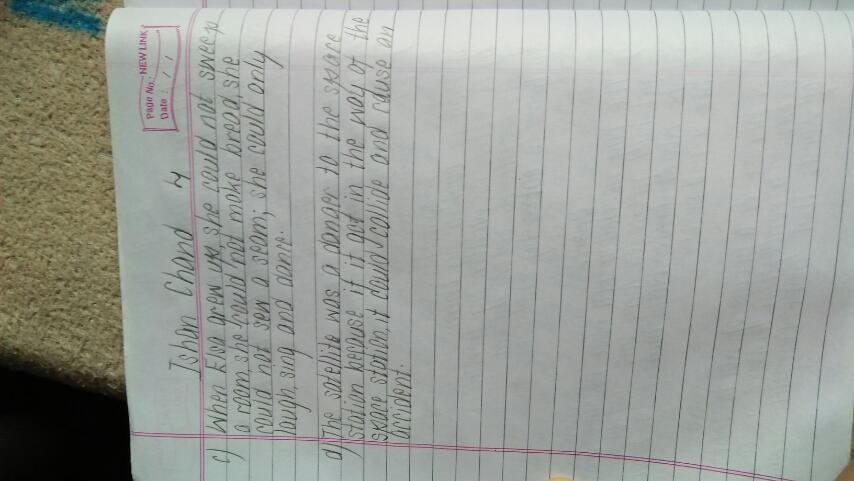 NEW LINK
Page No.:
Date : / /
Ishan Chand 4
c) When Elsa grew up, she could not sweep
a room, she could not make bread, she
could not sew a seam; she could only
laugh, sing and dance.
d) The satellite was a danger to the space
station because if it got in the way of the
space station, it could collide and cause an
accident.